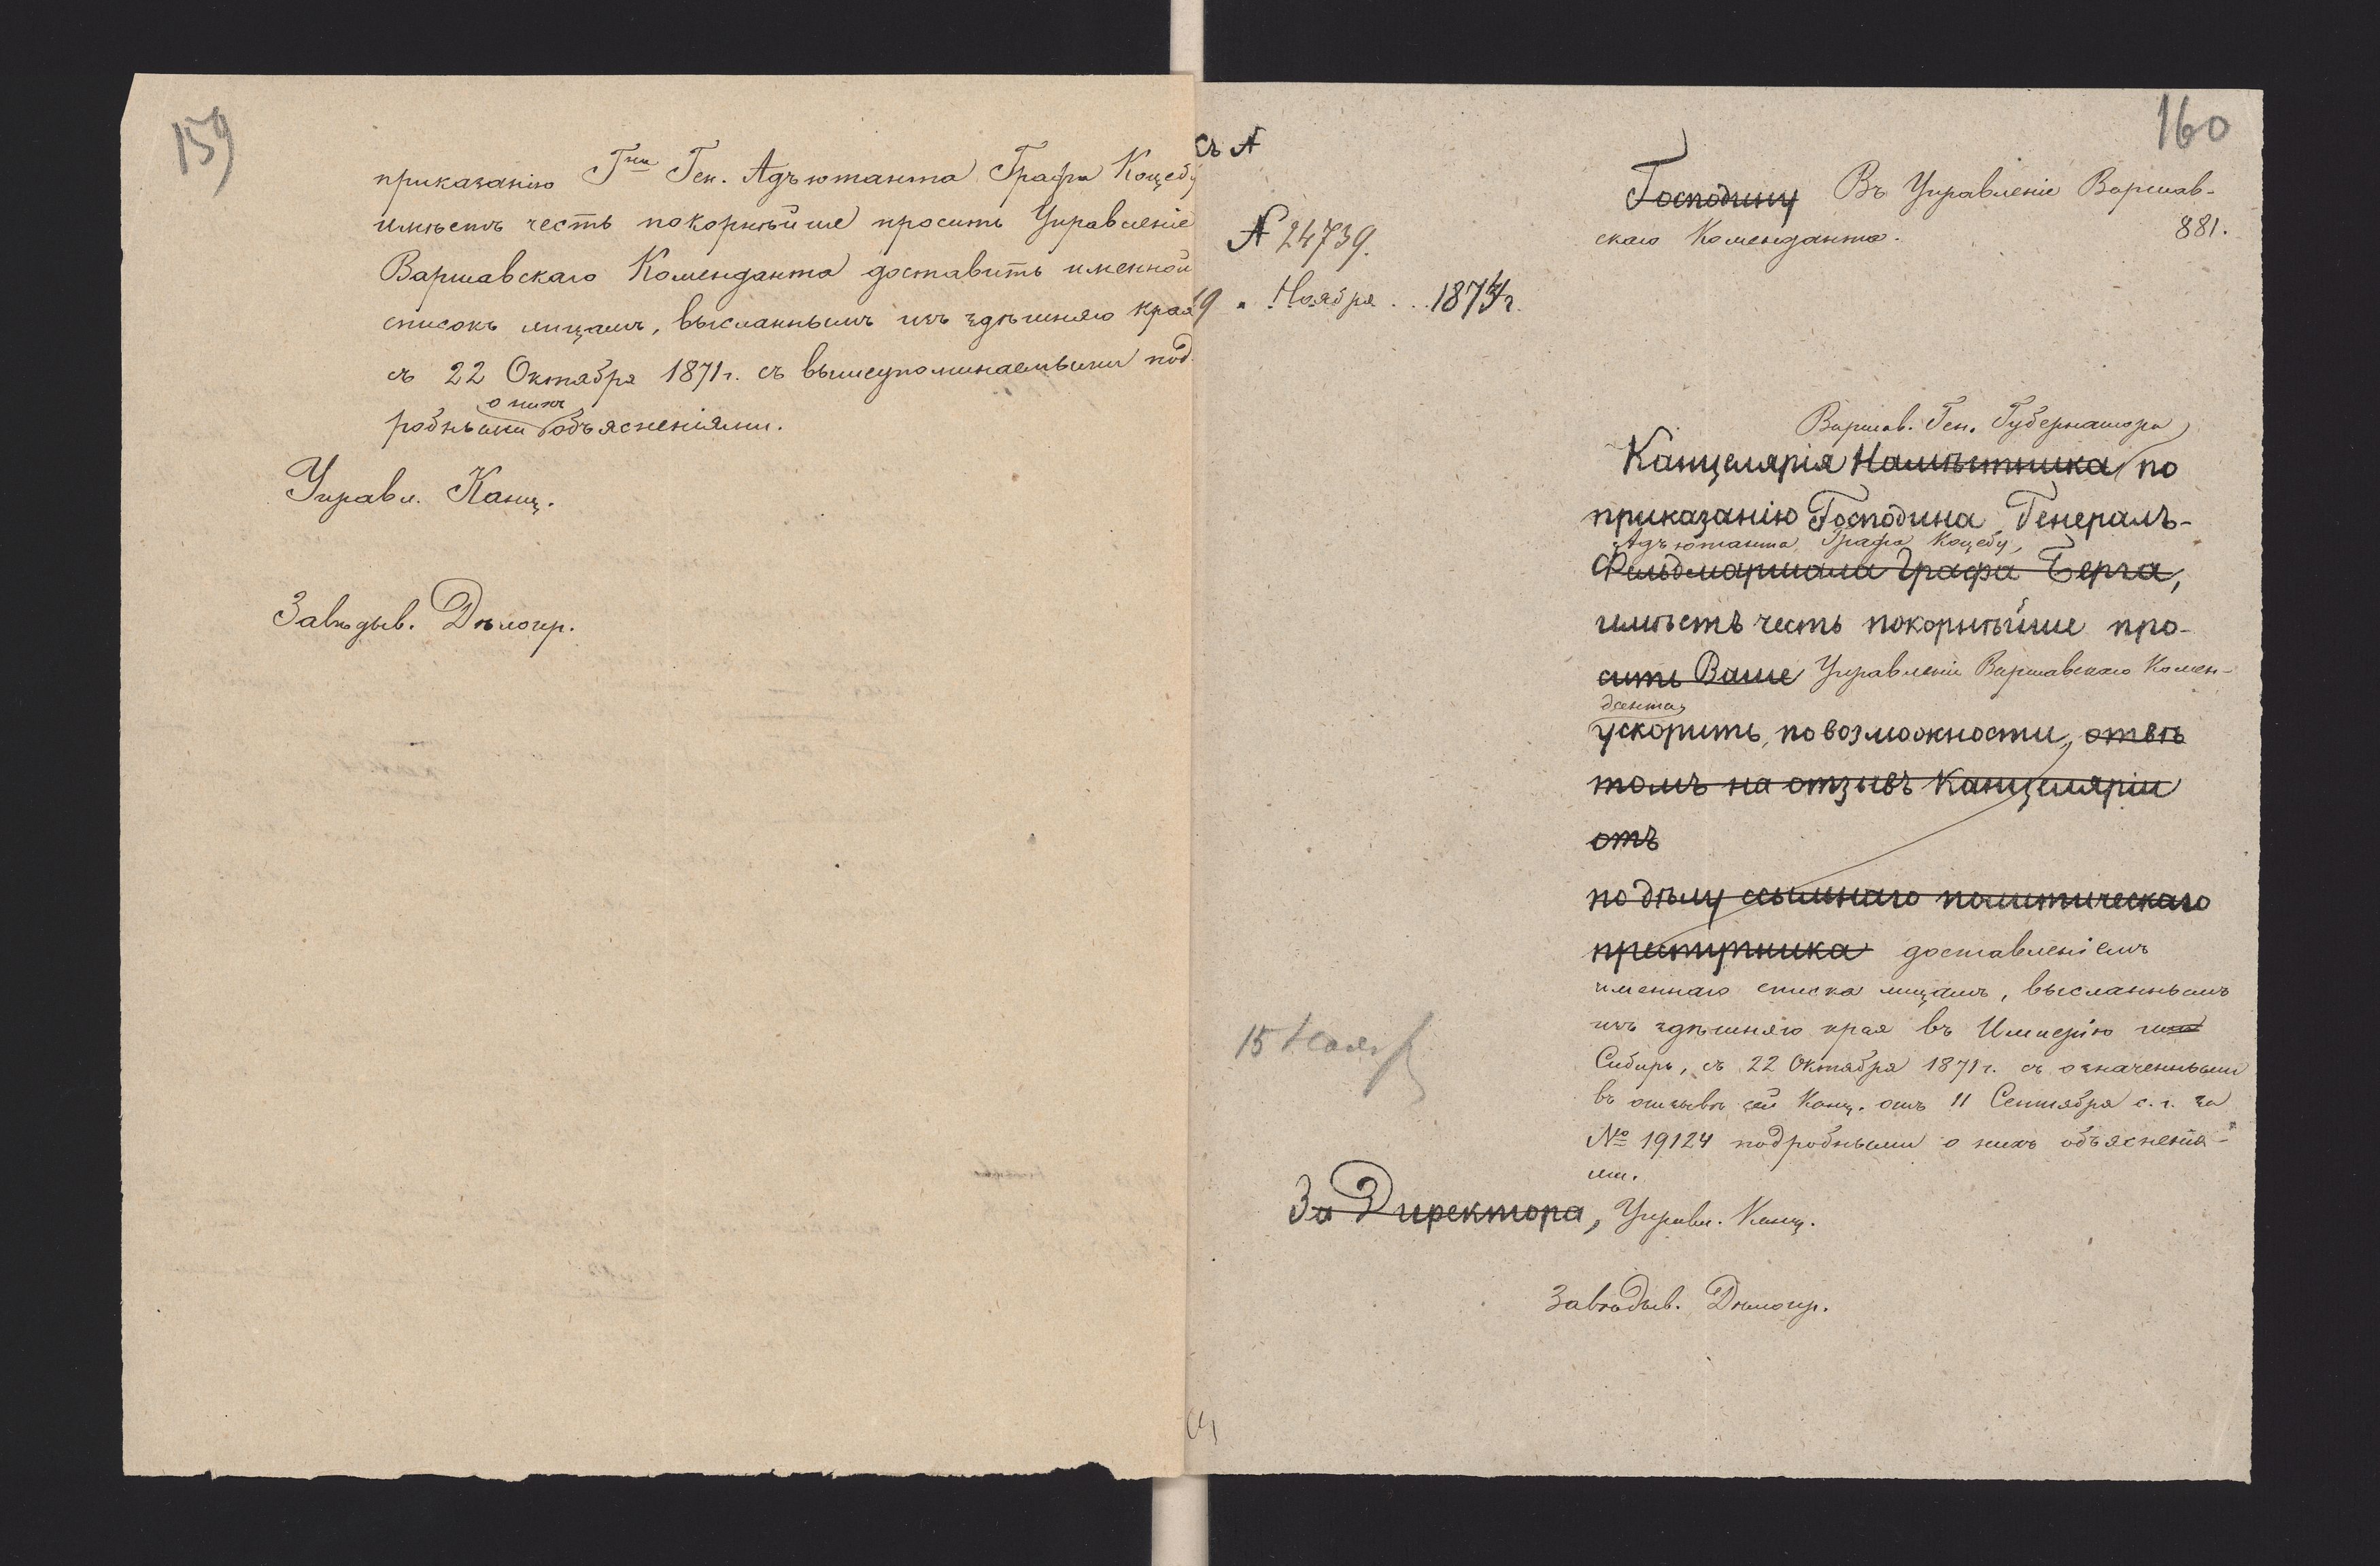 159
приказанію Гна Ген. Адъютанта Графа Коцебу
имѣетъ честь покорнѣйше просить Управленіе
Варшавскаго Коменданта доставить именной
списокъ лицамъ, высланнымъ изъ здѣшняго края
съ 22 Октября 1871 г. съ вышеупоминаемыми под-
о нихъ
робными объясненіями.
Управл. Канц.
Завѣдыв. Дѣлопр.
160
съ №
Господину Въ Управленіе Варшав-
скаго Коменданта.
881.
№ 24739.
19 " Ноября 1874 г.
Варшав. Ген. Губернатора
Канцелярія Намѣстника по
приказанію Господина Генералъ-
Адъютанта Графа Коцебу,
Фельдмаршала Графа Берга,
имѣетъ честь покорнѣйше про-
сить Ваше Управленіе Варшавскаго Комен-
данта
ускорить, по возможности, отвѣ
томъ на отзывъ Канцеляріи
отъ
по дѣлу ссыльнаго политическаго
преступника доставленіемъ
именнаго списка лицамъ, высланнымъ
изъ здѣшняго края въ Имперію и
Сибирь, съ 22 Октября 1871 г. съ означенными
въ отзывѣ сей Канц. отъ 11 Сентября с. г. за
№ 19124 подробными о нихъ объясненія-
ми.
15 Нояб
За Директора, Управл. Канц.
Завѣдыв. Дѣлопр.